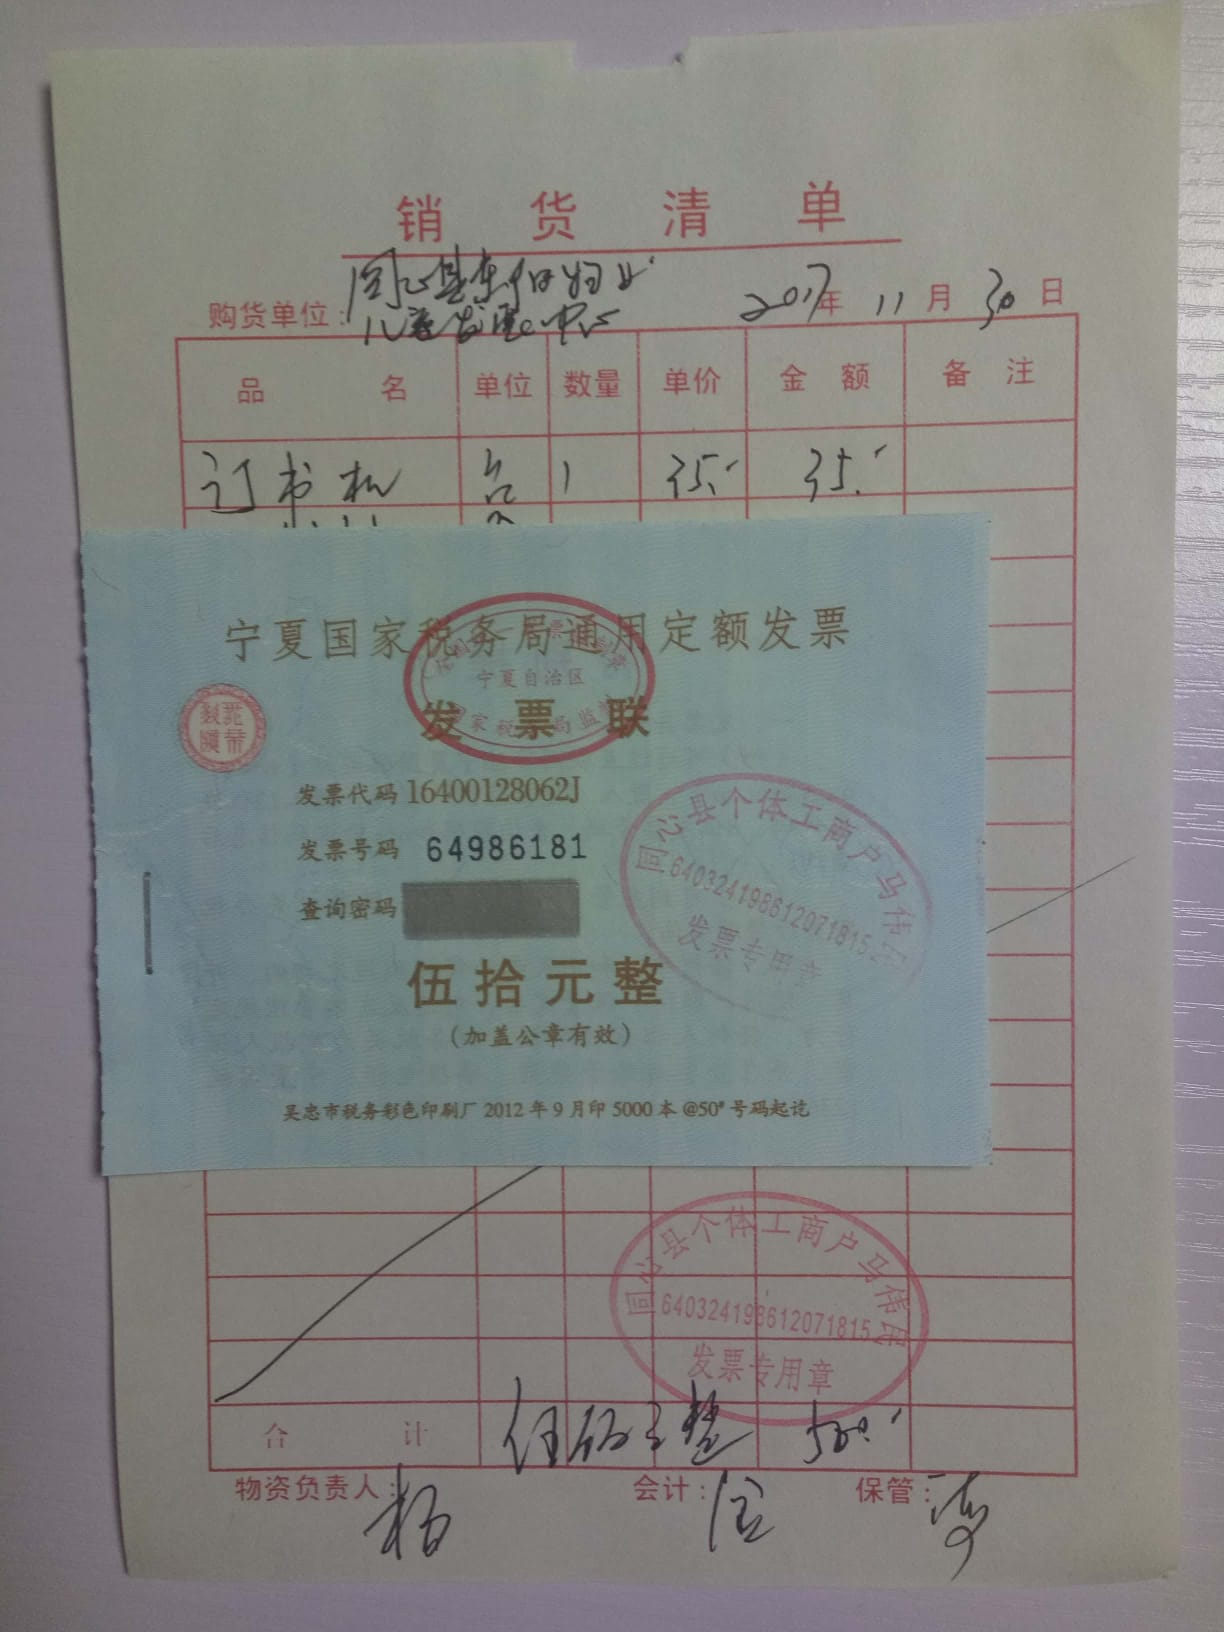 销货清单
购货单位：同心县东伊妇女
儿童发展中心
2017年11月30日
品名 单位 数量 单价 金额 备注
订书机 台 1 35.- 35.-
宁夏国家税务局通用定额发票
宁夏自治区
发票联
发票代码 16400128062J
发票号码 64986181
查询密码
伍拾元整
（加盖公章有效）
吴忠市税务彩色印刷厂 2012 年 9 月印 5000 本 @50# 号码起讫
同心县个体工商户马伟民
640324198612071815
发票专用章
同心县个体工商户马伟民
640324198612071815
发票专用章
合计 伍佰元整 500.-
物资负责人： 会计： 保管：